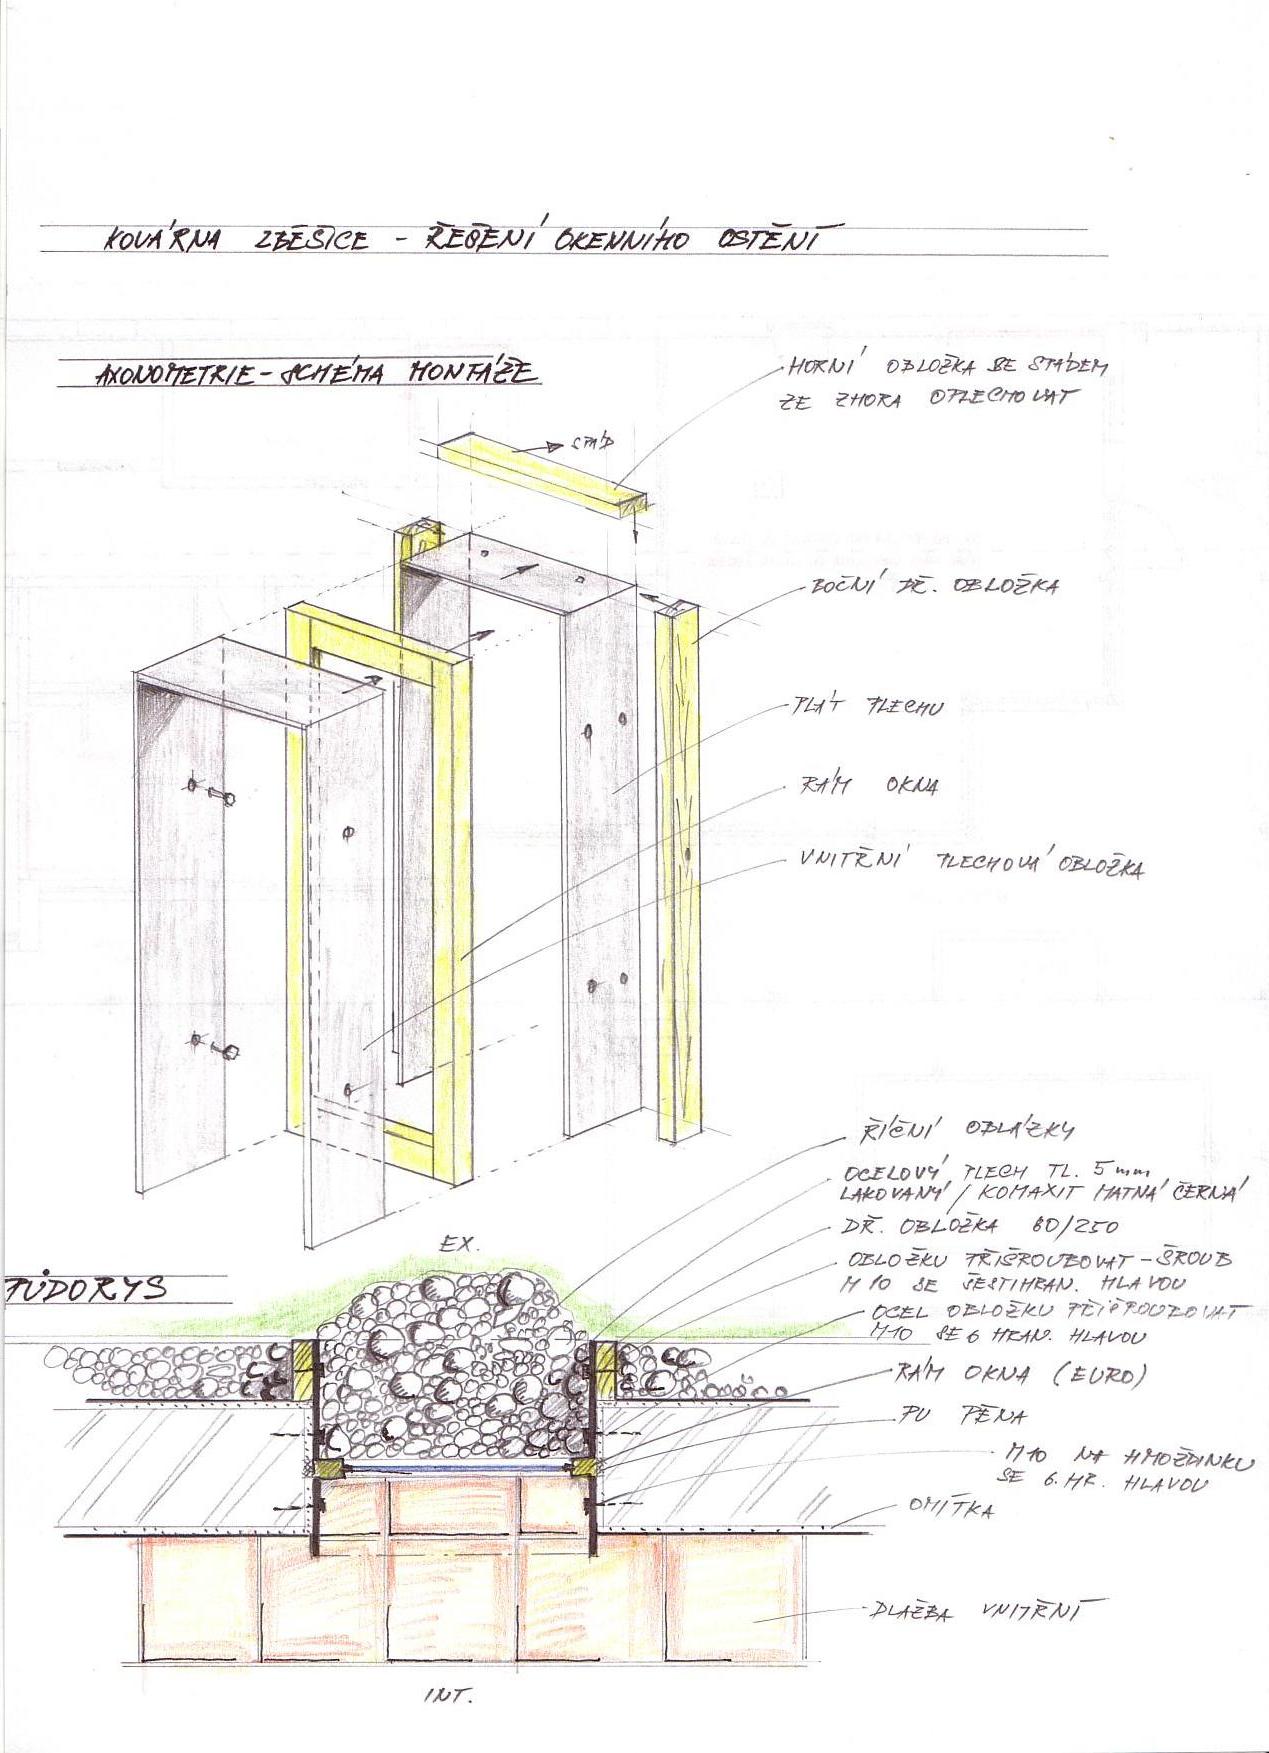 KOVÁRNA ZBĚŠICE - ŘEŠENÍ OKENNÍHO OSTĚNÍ
AXONOMETRIE - SCHÉMA MONTÁŽE
HORNÍ OBLOŽKA SE SPÁDEM
ZE ZHORA OPLECHOVAT
SPÁD
BOČNÍ DŘ. OBLOŽKA
PLÁT PLECHU
RÁM OKNA
VNITŘNÍ PLECHOVÁ OBLOŽKA
ŘÍČNÍ OBLÁZKY
OCELOVÝ PLECH TL. 5 mm
LAKOVANÝ / KOMAXIT MATNÁ ČERNÁ
DŘ. OBLOŽKA 80/250
OBLOŽKU PŘIŠROUBOVAT - ŠROUB
M 10 SE ŠESTIHRAN. HLAVOU
OCEL OBLOŽKU PŘIŠROUBOVAT
M10 SE 6 HRAN. HLAVOU
RÁM OKNA (EURO)
PU PĚNA
M10 NA HMOŽDINKU
SE 6. HR. HLAVOU
OMÍTKA
DLAŽBA VNITŘNÍ
EX.
PŮDORYS
INT.